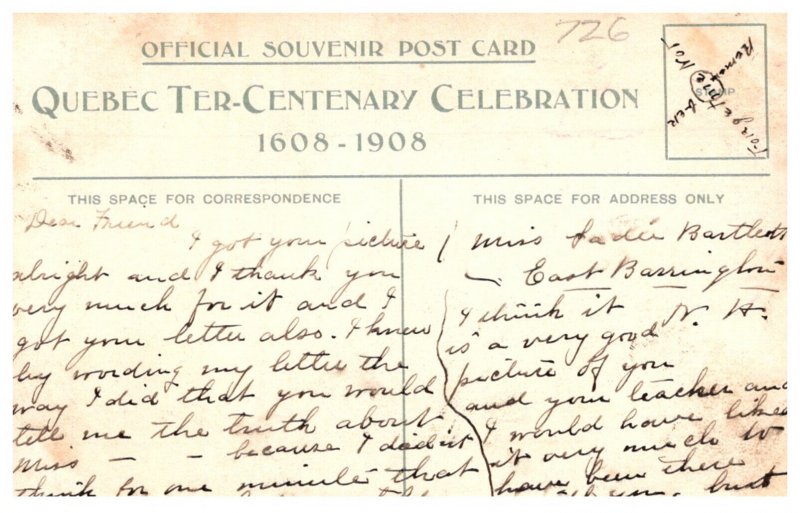 726
OFFICIAL SOUVENIR POST CARD
QUEBEC TER-CENTENARY CELEBRATION
1608-1908
Remember
Forget me Not
STAMP
THIS SPACE FOR CORRESPONDENCE
Dear Friend
I got your picture
alright and I thank you
very much for it and I
got your letter also. I knew
by wording my letter the
way I did that you would
tell me the truth about
Miss — — because I didn't
think for one minute that
THIS SPACE FOR ADDRESS ONLY
Miss Sadie Bartlett
East Barrington
N. H.
I think it
is a very good
picture of you
and your teacher and
I would have liked
it very much to
have been there
but